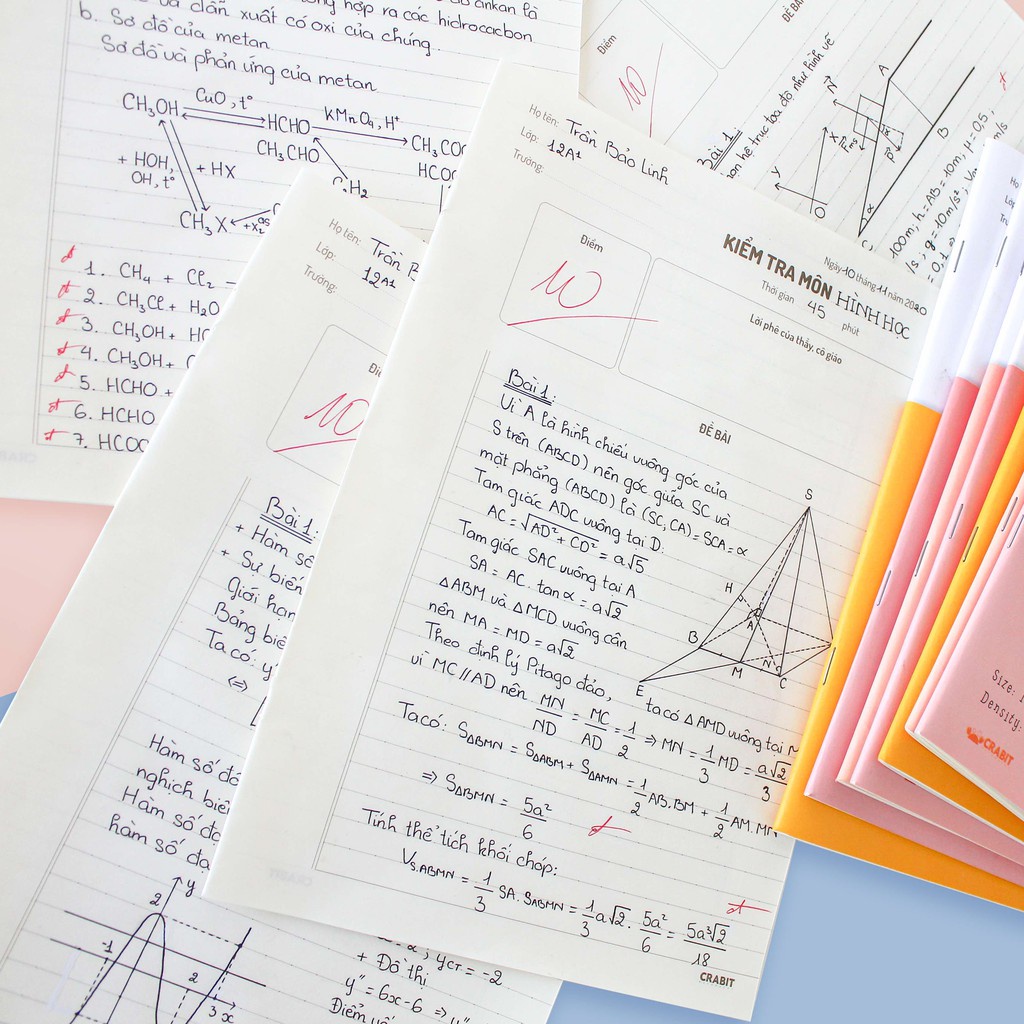 b. Sơ đồ của metan
Sơ đồ và phản ứng của metan
và dẫn xuất có oxi của chúng.
hợp ra các hidrocacbon
ankan là
CH₃OH
CuO, t°
HCHO
KMnO₄, H⁺
CH₃CHO
+ HOH,
OH, t°
+ HX
CH₃X
1. CH₄ + Cl₂
2. CH₃Cl + H₂O
3. CH₃OH +
4. CH₃OH +
5. HCHO +
6. HCHO
7.
Điểm
10
ĐỀ BÀI
Bài 1.
hệ trục tọa độ như hình vẽ
N
A
B
P
X
Y
O
α
100m, h = AB = 10m, μ = 0,5,
g = 10m/s²
Họ tên: Trần
Lớp: 12A1
Trường:
10
Bài 1:
+ Hàm số
+ Sự biến
Giới hạn
Bảng
Ta có: y'
⇔
Hàm số
nghịch
Hàm số
hàm số
y
2
-1
2
3 x
yCT = -2
+ Đồ thị
y" = 6x - 6 ⇒ y"
Điểm
Họ tên: Trần Bảo Linh
Lớp: 12A1
Trường:
Điểm
10
KIỂM TRA MÔN HÌNH HỌC
Ngày 10 tháng 11 năm 2020
Thời gian 45 phút
Lời phê của thầy, cô giáo
ĐỀ BÀI
Bài 1:
Vì A là hình chiếu vuông góc của
S trên (ABCD) nên góc giữa SC và
mặt phẳng (ABCD) là (SC, CA) = SCA = α
Tam giác ADC vuông tại D:
AC = √AD² + CD² = a√5
Tam giác SAC vuông tại A
SA = AC. tanα = a√2
ΔABM và ΔMCD vuông cân
nên MA = MD = a√2
Theo định lý Pitago đảo, ta có ΔAMD vuông tại M
vì MC // AD nên MN/ND = MC/AD = 1/2 ⇒ MN = 1/3 MD = a√2/3
Ta có: SΔBMN = SΔABM + SΔAMN = 1/2 AB.BM + 1/2 AM.MN
⇒ SΔBMN = 5a²/6
Tính thể tích khối chóp:
VS.ABMN = 1/3 SA. SABMN = 1/3 a√2. 5a²/6 = 5a³√2/18
S
H
B
A
E
M
N
C
CRABIT
Size:
Density:
CRABIT